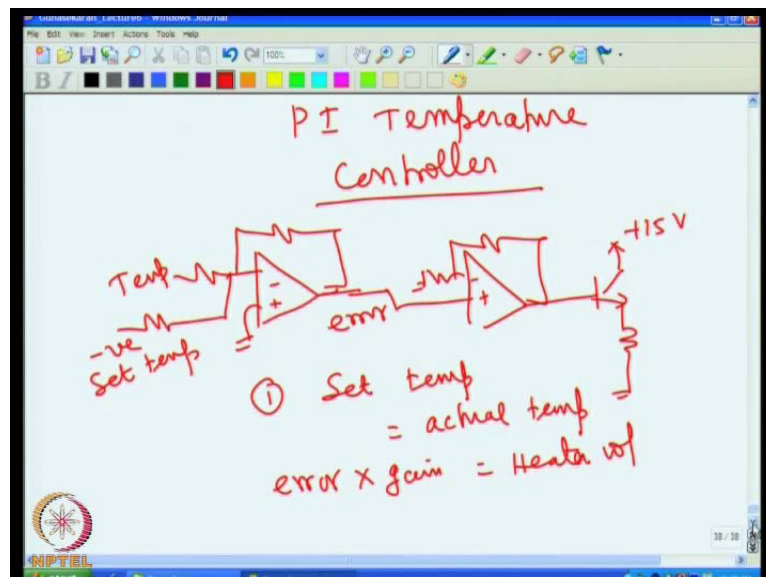 Gunasekaran_Lecture6 - Windows Journal
File Edit View Insert Actions Tools Help
100%
B I
PI Temperature
Controller
+15 V
Temp
-
+
-
+
error
-ve
Set temp
① Set temp
= actual temp
error x gain = Heater vol
NPTEL
38 / 38